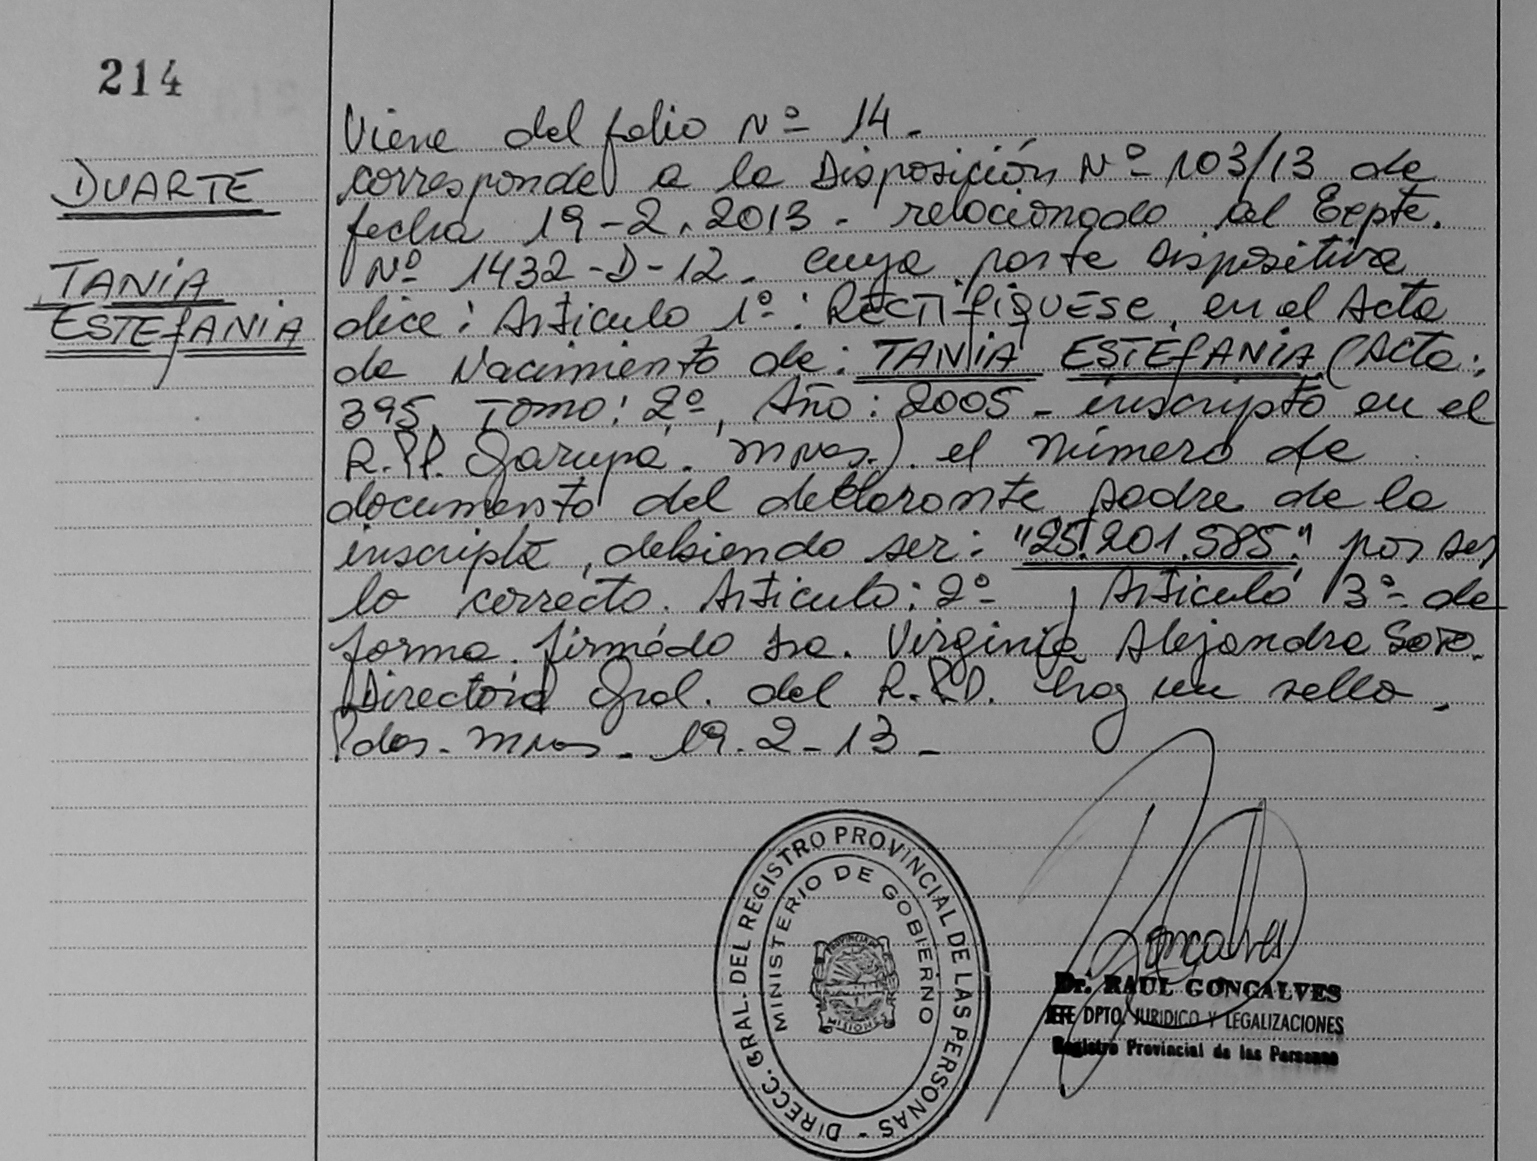 214
DUARTE
TANIA
ESTEFANIA
Viene del folio Nº 14.
corresponde a la Disposición Nº 103/13 de
fecha 19-2.2013. relacionado al Expte.
Nº 1432-D-12. cuya parte dispositiva
dice: Articulo 1º: RECTIFIQUESE, en el Acta
de Nacimiento de: TANIA ESTEFANIA (Acta:
395, Tomo: 2º, Año: 2005 - inscripta en el
R.P.P. Garupá. Mnes.). el número de
documento del declarante padre de la
inscripta, debiendo ser: "25.201.585." por ser
lo correcto. Articulo: 2º, Articulo 3º- de
forma. firmado Dra. Virginia Alejandra Soto.
Directora Gral. del R.P.P. hay un sello.
Pdas. Mnes. 19.2-13-
DIRECC. GRAL. DEL REGISTRO PROVINCIAL DE LAS PERSONAS -
MINISTERIO DE GOBIERNO
PROVINCIA
MISIONES
Goncalves
Dr. RAUL GONCALVES
JEFE DPTO. JURIDICO Y LEGALIZACIONES
Registro Provincial de las Personas